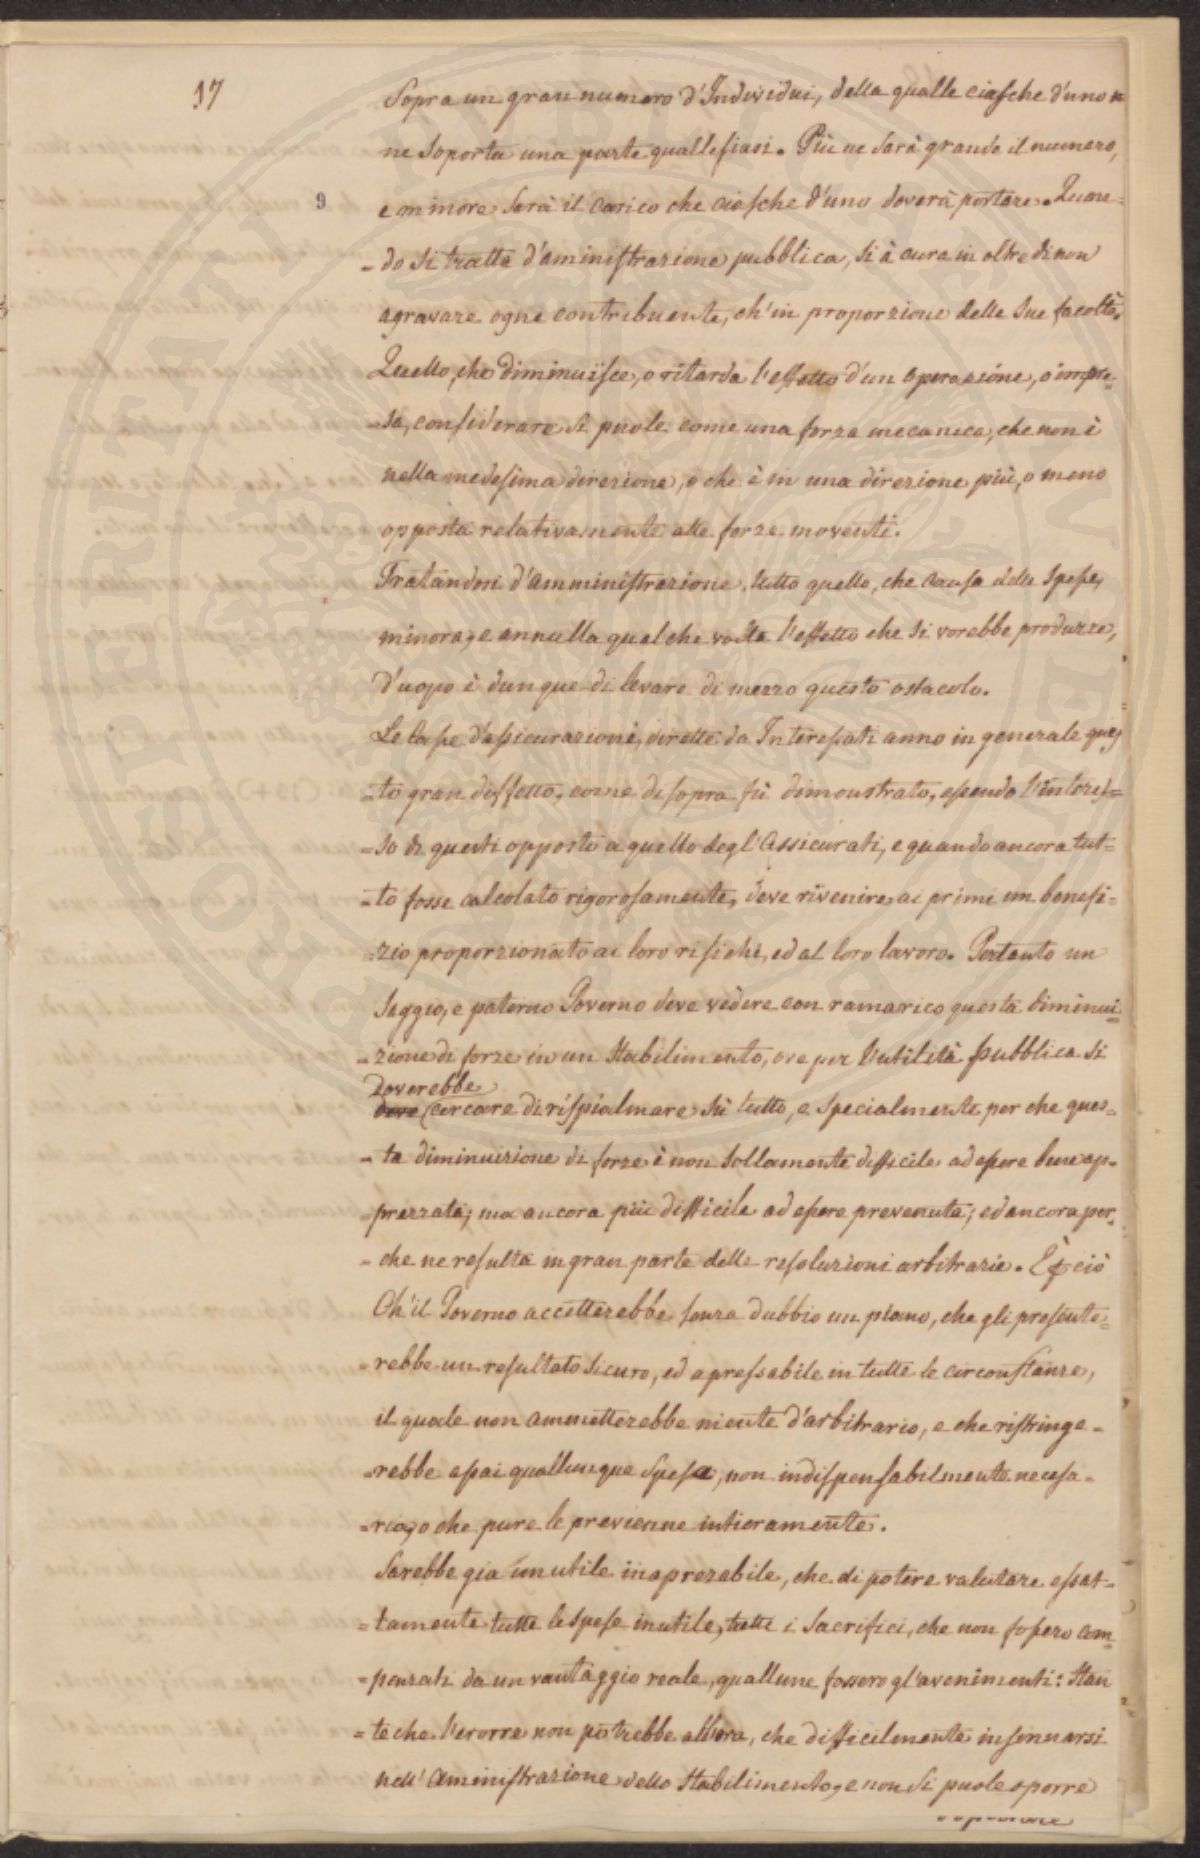 17
Sopra un gran numero d'Individui, della qualle ciasche d'uno
ne soporta una parte quallesiasi. Più ne sarà grande il numero,
9
e minore sarà il carico che ciasche d'uno doverà portare. Quan=
=do si tratta d'aministrazione pubblica, si à cura in oltre di non
agravare ogne contribuente, ch'in proporzione delle sue facoltà.
Quello, che diminuisce, o ritarda l'effetto d'un operazione, o impre=
=sa, considerare si puole come una forza mecanica, che non è
nella medesima direzione, o che è in una direzione più, o meno
opposta relativamente alle forze moventi.
Tratandosi d'amministrazione, tutto quello, che causa delle spese,
minora, e annulla qualche volta l'effetto che si vorebbe produrre,
D'uopo è dunque di levare di mezzo questo ostacolo.
Le Casse d'assicurazioni, dirette da Interessati anno in generale ques
=to gran deffetto, come di sopra fù dimonstrato, essendo l'interes=
=so di questi opposto a quello degl'Assicurati, e quando ancora tut=
=to fosse calcolato rigorosamente, deve rivenire ai primi un benefi=
=zio proporzionato ai loro risichi, ed al loro lavoro. Pertanto un
Saggio, e paterno Governo deve vedere con ramarico questa diminui
=zione di forze in un Stabilimento, ove per l'utilità pubblica si
Doverebbe
deve cercare di rispialmare sù tutto, e specialmente per che ques=
=ta diminuizione di forze è non sollamente difficile ad essere bene ap=
=prezzata; ma ancora più difficile ad essere prevenuta; ed ancora per
=che ne resulta in gran parte delle resoluzioni arbitrarie. E ciò
Ch'il Governo accetterebbe senza dubbio un piano, che gli presente=
=rebbe un resultato sicuro, ed apressabile in tutte le circonstanze,
il quale non ammetterebbe niente d'arbitrario, e che ristringe=
=rebbe assai quallunque spesa, non indispensabilmente necessa=
=ria, o che pure le previenne intieramente.
Sarebbe gia un utile inaprezabile, che di potere valutare essat=
=tamente tutte le spese inutile, tutti i sacrifici, che non fossero com
=pensati da un vantaggio reale, quallune fossero gl'avenimenti: Stan
=te che l'erorre non potrebbe allora, che difficilmente insinuarsi
nell'Aministrazione dello Stabilimento, e non si puole oporre